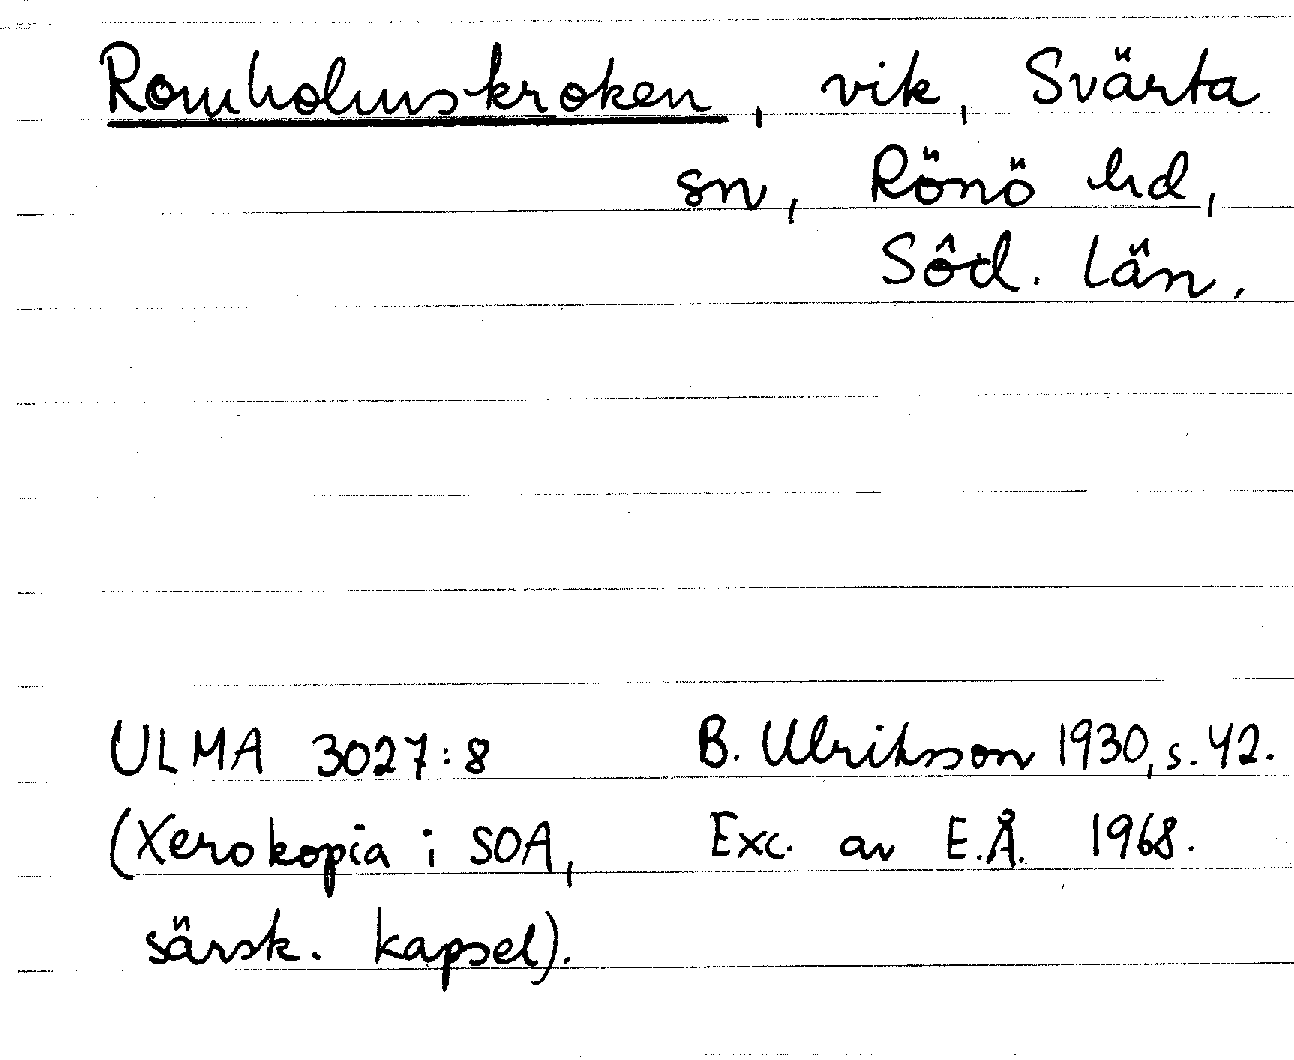 Romholmskroken, vik, Svärta
sn, Rönö hd,
Söd. län.
ULMA 3027:8 B. Ulriksson 1930, s. 42.
(Xerokopia i SOA, Exc. av E.Å. 1968.
särsk. kapsel).